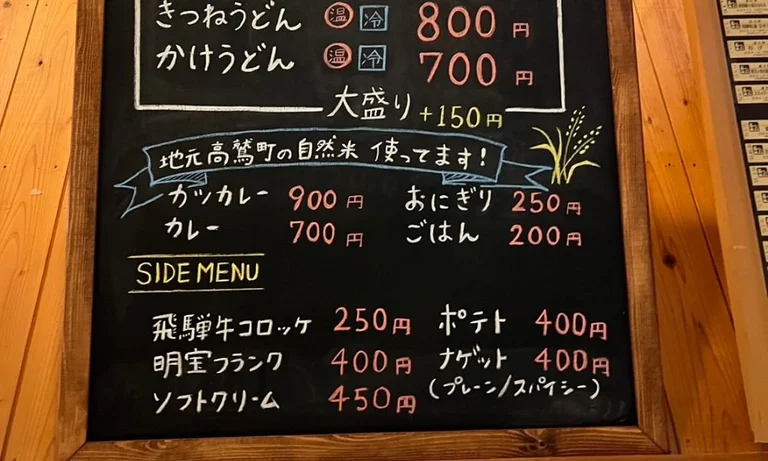 きつねうどん 温 冷 800円
かけうどん 温 冷 700円
大盛り +150円
地元 高鷲町の自然米 使ってます!
カツカレー 900円 おにぎり 250円
カレー 700円 ごはん 200円
SIDE MENU
飛騨牛コロッケ 250円 ポテト 400円
明宝フランク 400円 ナゲット 400円
ソフトクリーム 450円 (プレーン/スパイシー)